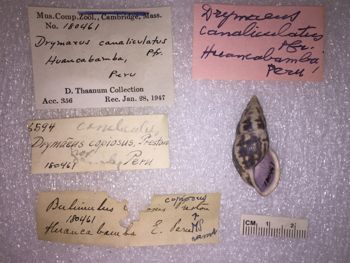 Mus. Comp. Zool., Cambridge, Mass.
No. 180461
Drymaeus canaliculatus
Pfr.
Huancabamba,
Peru
D. Thaanum Collection
Acc. 356 Rec. Jan. 28, 1947
Drymaeus
canaliculatus
Pfr.
Huancabamba
Peru
6594
Drymaeus copiosus, Preston
180461 Peru
Bulimulus copiosus
180461
Huancabamba E. Peru
CM 1 2